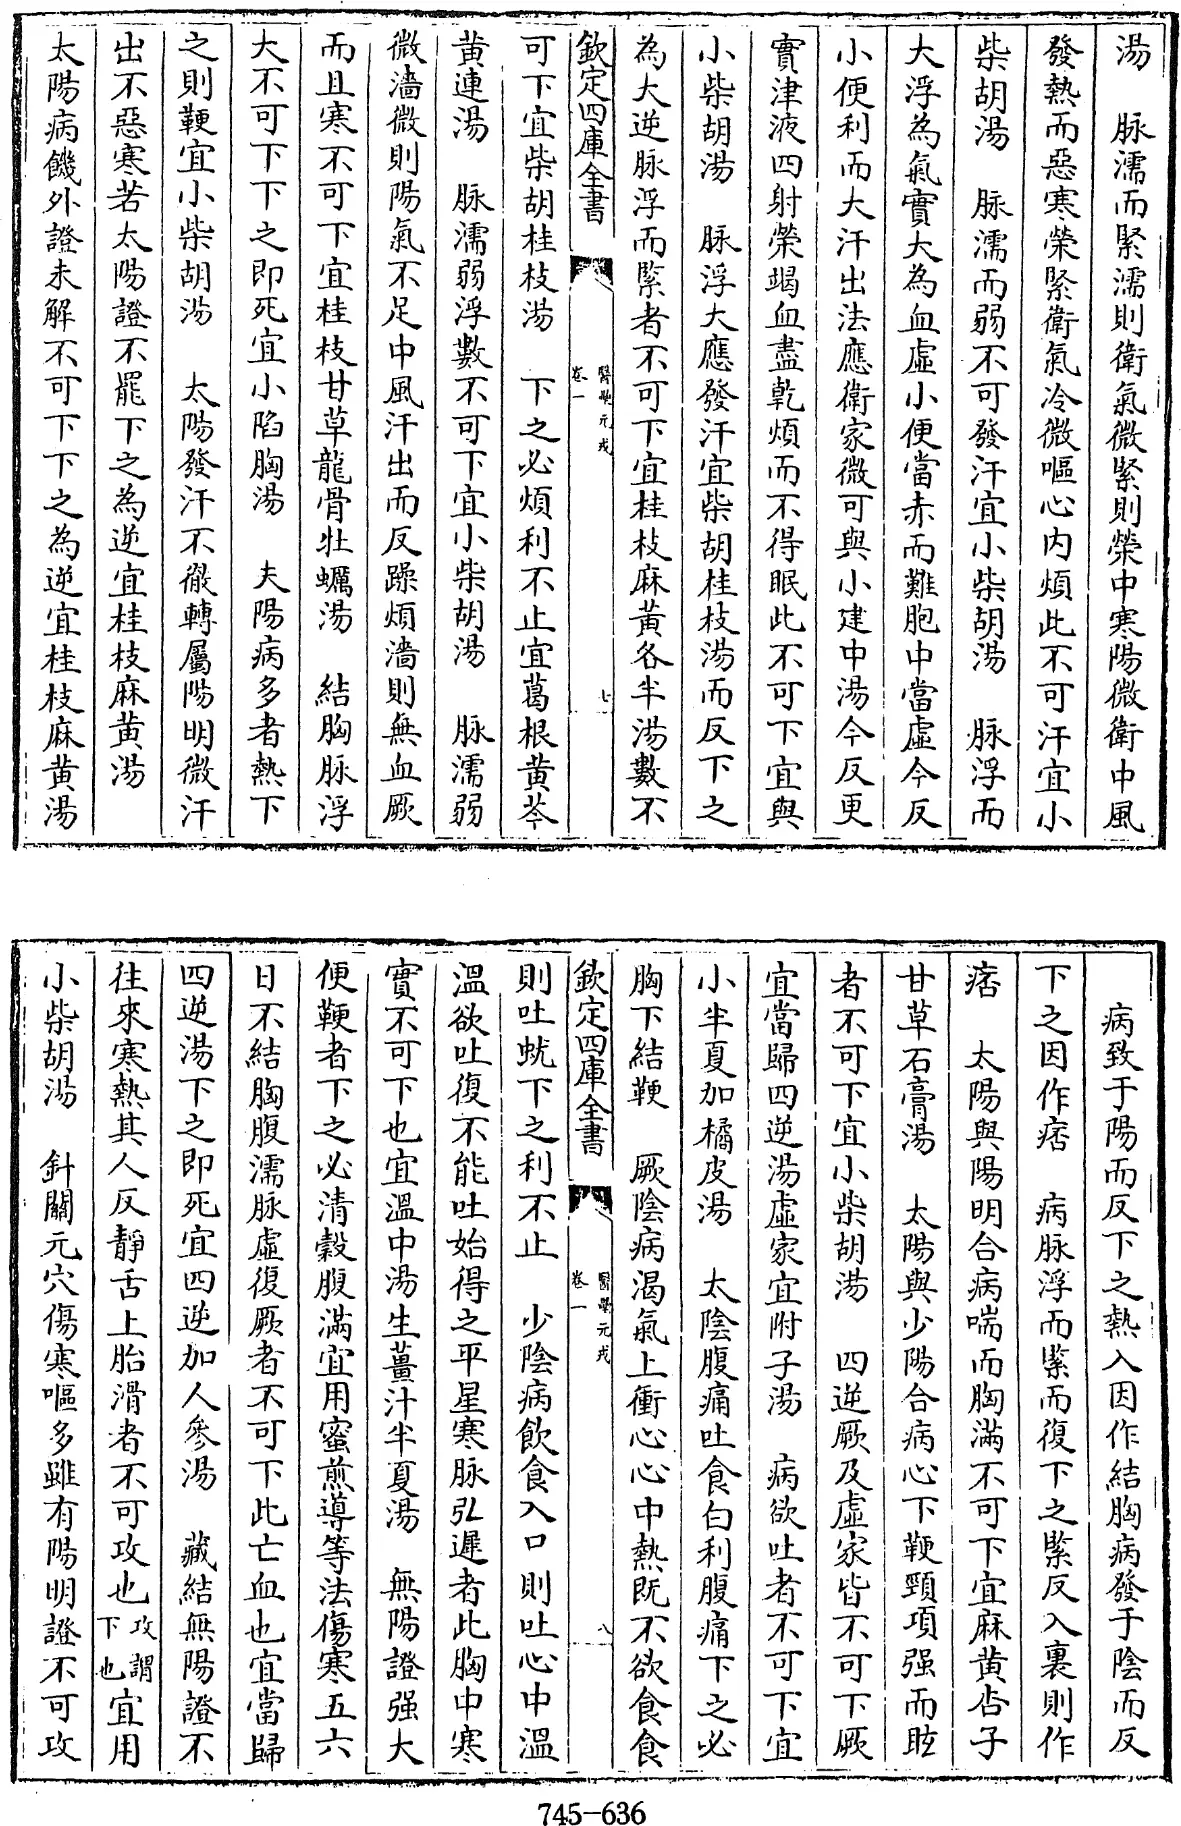 湯　脉濡而緊濡則衛氣微緊則榮中寒陽微衛中風
發熱而惡寒榮緊衛氣冷微嘔心内煩此不可汗宜小
柴胡湯　脉濡而弱不可發汗宜小柴胡湯　脉浮而
大浮為氣實大為血虛小便當赤而難胞中當虛今反
小便利而大汗出法應衛家微可與小建中湯今反更
實津液四射榮竭血盡乾煩而不得眠此不可下宜與
小柴胡湯　脉浮大應發汗宜柴胡桂枝湯而反下之
為大逆脉浮而緊者不可下宜桂枝麻黄各半湯數不
欽定四庫全書　醫壘元戎　卷一　七
可下宜柴胡桂枝湯　下之必煩利不止宜葛根黄芩
黄連湯　脉濡弱浮數不可下宜小柴胡湯　脉濡弱
微濇微則陽氣不足中風汗出而反躁煩濇則無血厥
而且寒不可下宜桂枝甘草龍骨牡蠣湯　結胸脉浮
大不可下下之即死宜小陷胸湯　夫陽病多者熱下
之則鞕宜小柴胡湯　太陽發汗不徹轉屬陽明微汗
出不惡寒若太陽證不罷下之為逆宜桂枝麻黄湯
太陽病饑外證未解不可下下之為逆宜桂枝麻黄湯
病致于陽而反下之熱入因作結胸病發于陰而反
下之因作痞　病脉浮而緊而復下之緊反入裏則作
痞　太陽與陽明合病喘而胸滿不可下宜麻黄杏子
甘草石膏湯　太陽與少陽合病心下鞕頸項强而眩
者不可下宜小柴胡湯　四逆厥及虛家皆不可下厥
宜當歸四逆湯虛家宜附子湯　病欲吐者不可下宜
小半夏加橘皮湯　太陰腹痛吐食自利腹痛下之必
胸下結鞕　厥陰病渴氣上衝心心中熱既不欲食食
欽定四庫全書　醫壘元戎　卷一　八
則吐蚘下之利不止　少陰病飲食入口則吐心中溫
溫欲吐復不能吐始得之平星寒脉弘遲者此胸中寒
實不可下也宜溫中湯生薑汁半夏湯　無陽證强大
便鞕者下之必清穀腹滿宜用蜜煎導等法傷寒五六
日不結胸腹濡脉虛復厥者不可下此亡血也宜當歸
四逆湯下之即死宜四逆加人參湯　藏結無陽證不
往來寒熱其人反靜舌上胎滑者不可攻也攻謂下也宜用
小柴胡湯　針關元穴傷寒嘔多雖有陽明證不可攻
745-636